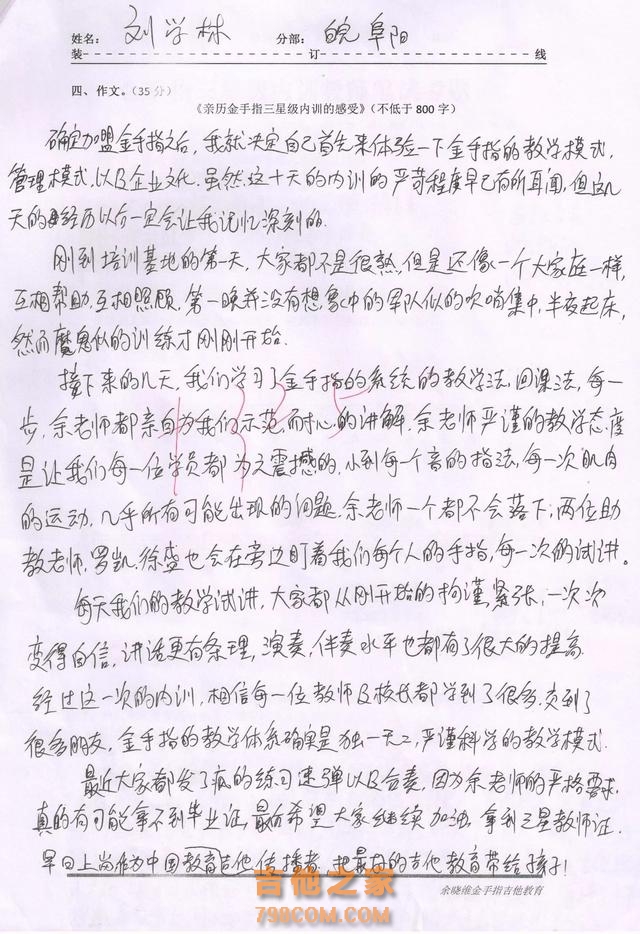 姓名： 刘学林 分部： 皖阜阳
装订线
四、作文。（35分）
《亲历金手指三星级内训的感受》（不低于800字）
确定加盟金手指之后，我就决定自己首先来体验一下金手指的教学模式，
管理模式，以及企业文化。虽然这十天的内训的严苛程度早已有所耳闻，但这几
天的经历以后一定会让我记忆深刻的.
刚到培训基地的第一天，大家都不是很熟，但是还像一个大家庭一样，
互相帮助，互相照顾，第一晚并没有想象中的军队似的吹哨集中，半夜起床，
然而魔鬼似的训练才刚刚开始.
接下来的几天，我们学习了金手指的系统的教学法，回课法，每一
步，余老师都亲自为我们示范，而耐心的讲解.余老师严谨的教学态度
是让我们每一位学员都为之震撼的，小到每个音的指法，每一次肌肉
的运动，几乎所有可能出现的问题，余老师一个都不会落下；两位助
教老师，罗凯，徐盛也会在旁边盯着我们每个人的手指，每一次的试讲。
每天我们的教学试讲，大家都从刚开始的拘谨，紧张，一次次
变得自信，讲话更有条理，演奏，伴奏水平也都有了很大的提高.
经过这一次的内训，相信每一位教师及校长都学到了很多，交到了
很多朋友，金手指的教学体系确实是独一无二，严谨科学的教学模式.
最近大家都发了疯的练习速弹以及合奏，因为余老师的严格要求，
真的有可能拿不到毕业证，最后希望大家继续加油，拿到三星教师证.
早日上岗作为中国教育吉他传播者，把最好的吉他教育带给孩子！
余晓维金手指吉他教育
吉他之家
798COM.COM